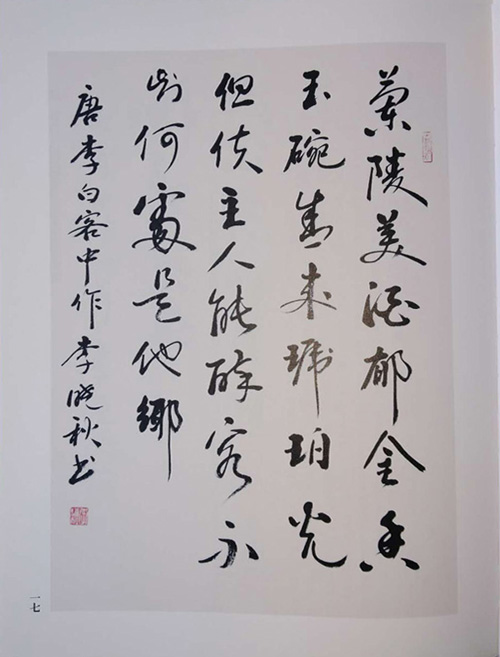 蘭陵美酒郁金香
玉碗盛来琥珀光
但使主人能醉客不
知何處是他鄉
唐李白客中作李晓秋书
一七